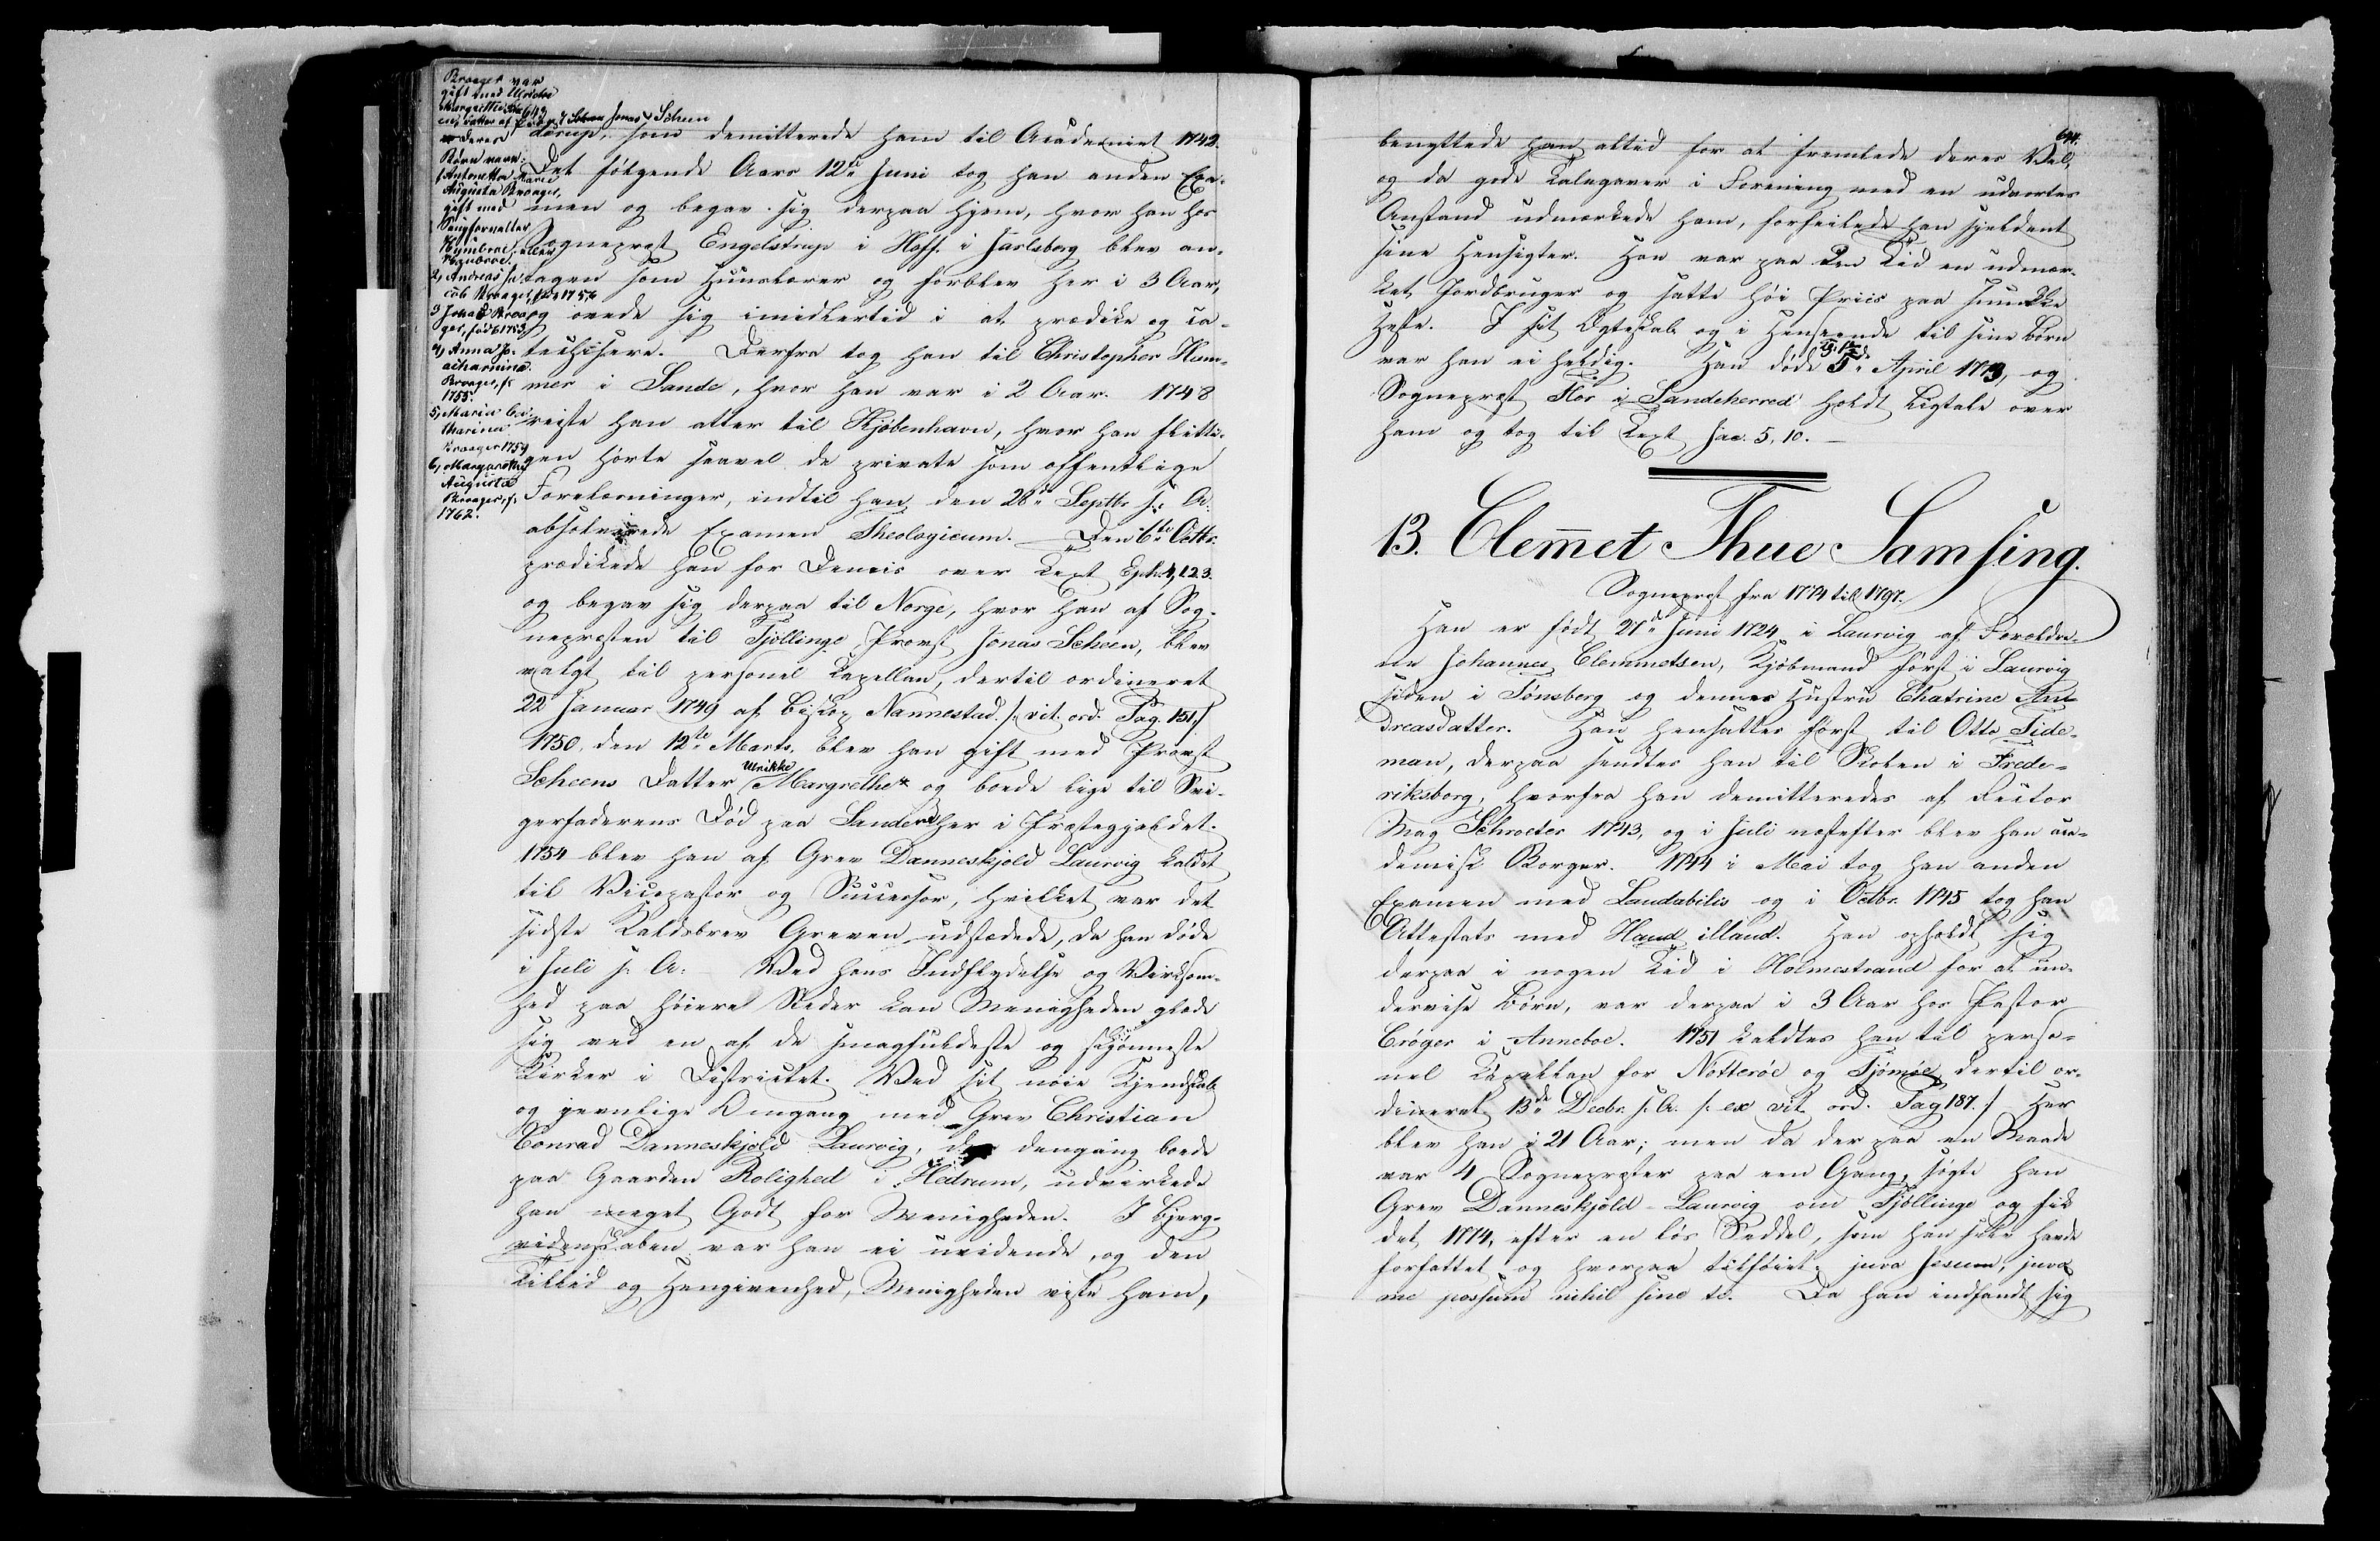 Kraager var
gift med Ulricke
Margrethe
en Datter af Jonas Scheen
Deres
Børn vare:
1, Antonetta Marie
Augusta Kraager,
gift med
Humbroe, eller
2, Andreas Ja-
cob Kraager, f. 1754
3, Jonas Kraa-
ger, født 1753
4, Anna Jo-
achamina
Kraager, f.
1755.
5, Maria Ca-
tharina
Kraager 1759
6, Margarethe
Augusta
Kraager, f.
1762.
dorup, som demitterede ham til Academiet 1742.
Det følgende Aars 12te Juni tog han anden Exa-
men og begav sig derpaa hjem, hvor han hos
Sognepræst Engelstrup i Hoff i Jarlsberg blev an-
tagen som Huuslærer og forblev her i 3 Aar,
og øvede sig imidlertid i at prædike og ca-
techisere. Derfra tog han til Christopher Hum-
mer i Sande, hvor han var i 2 Aar. 1748
reiste han atter til Kjøbenhavn, hvor han flitti-
gen hørte saavel de private som offentlige
Forelæsninger, indtil han den 28de Septbr s. A.
absolverede Examen Theologicum. – Den 6te Octbr.
prædikede han for Demis over Text Eph. 4, 1.2.3.
og begav sig derpaa til Norge, hvor han af Sog-
nepræsten til Tjøllinge Provst Jonas Scheen, blev
valgt til personel Kapellan, dertil ordineret
22 Januar 1749 af Biskop Nannestad. /: vit. ord. Pag. 151 :/
1750, den 12te Marts, blev han gift med Provst
Scheens Datter Ulrikke Margrethe* og boede lige til Svi-
gerfaderens Død paa Sande her i Præstegjeldet.
1754 blev han af Grev Danneskjold Laurvig kaldet
til Vicepastor og Successor, hvilket var det
sidste Kaldsbrev Greven udstædede, da han døde
i Juli s. A. – Ved hans Indflydelse og Virksom-
hed paa høiere Steder kan Menigheden glæde
sig ved en af de smagfuldeste og skjønneste
Kirker i Districtet. Ved sit nøie Kjendskab
og jevnlige Omgang med Grev Christian
Conrad Danneskjold Laurvig, der dengang boede
paa Gaarden Rolighed i Hedrum, udvirkede
han meget Godt for Menigheden. I Bjerg-
videnskaben var han ei uvidende, og den
Tillid og Hengivenhed, Menigheden viste ham,
benyttede han altid for at fremlede deres Vel,
og da gode Talegaver i Forening med en udvortes
Anstand udmærkede ham, forfeilede han sjeldent
sine Hensigter. Han var paa den Tid en udmær-
ket Jordbruger og satte høi Priis paa smukke
Heste. I sit Ægteskab og i Henseende til sine Børn
var han ei heldig. Han døde 5de April 1773, og
Sognepræst Flor i Sandeherred holdt Ligtale over
ham og tog til Text Jac. 5, 10. –
13. Clem̅et Thue Samsing.
Sognepræst fra 1774 til 1797.
Han er født 27de Juni 1724 i Laurvig af Forældre-
ne Johannes Clemmetsen, Kjøbmand først i Laurvig
siden i Tønsberg og dennes Hustru Chatrine An-
dreasdatter. Han hensattes først til Otto Tide-
man, derpaa sendtes han til Skolen i Frede-
riksborg, hvorfra han demitteredes af Rector
Mag Schroeder 1743, og i Juli næstefter blev han aca-
demisk Borger. 1744 i Mai tog han anden
Examen med Laudabilis og i Octbr. 1745 tog han
Attestats med Haud illaud. Han opholdt sig
derpaa i nogen Tid i Holmestrand for at un-
dervise Børn, var derpaa i 3 Aar hos Pastor
Crøger i Anneboe. 1751 kaldtes han til perso-
nel Kapellan for Nøtterøe og Tjømøe, dertil or-
dineret 13de Decbr. s. A. /: ex vit ord. Pag 187. :/ Her
blev han i 21 Aar; men da der paa en Maade
var 4 Sognepræster paa een Gang, søgte han
Grev Danneskjold-Laurvig om Tjøllinge og fik
det 1774, efter en løs Seddel, som han selv havde
forfattet og hvorpaa tilføiet: juva Jesum, juva
me possum nihil sine te. Da han indfandt sig